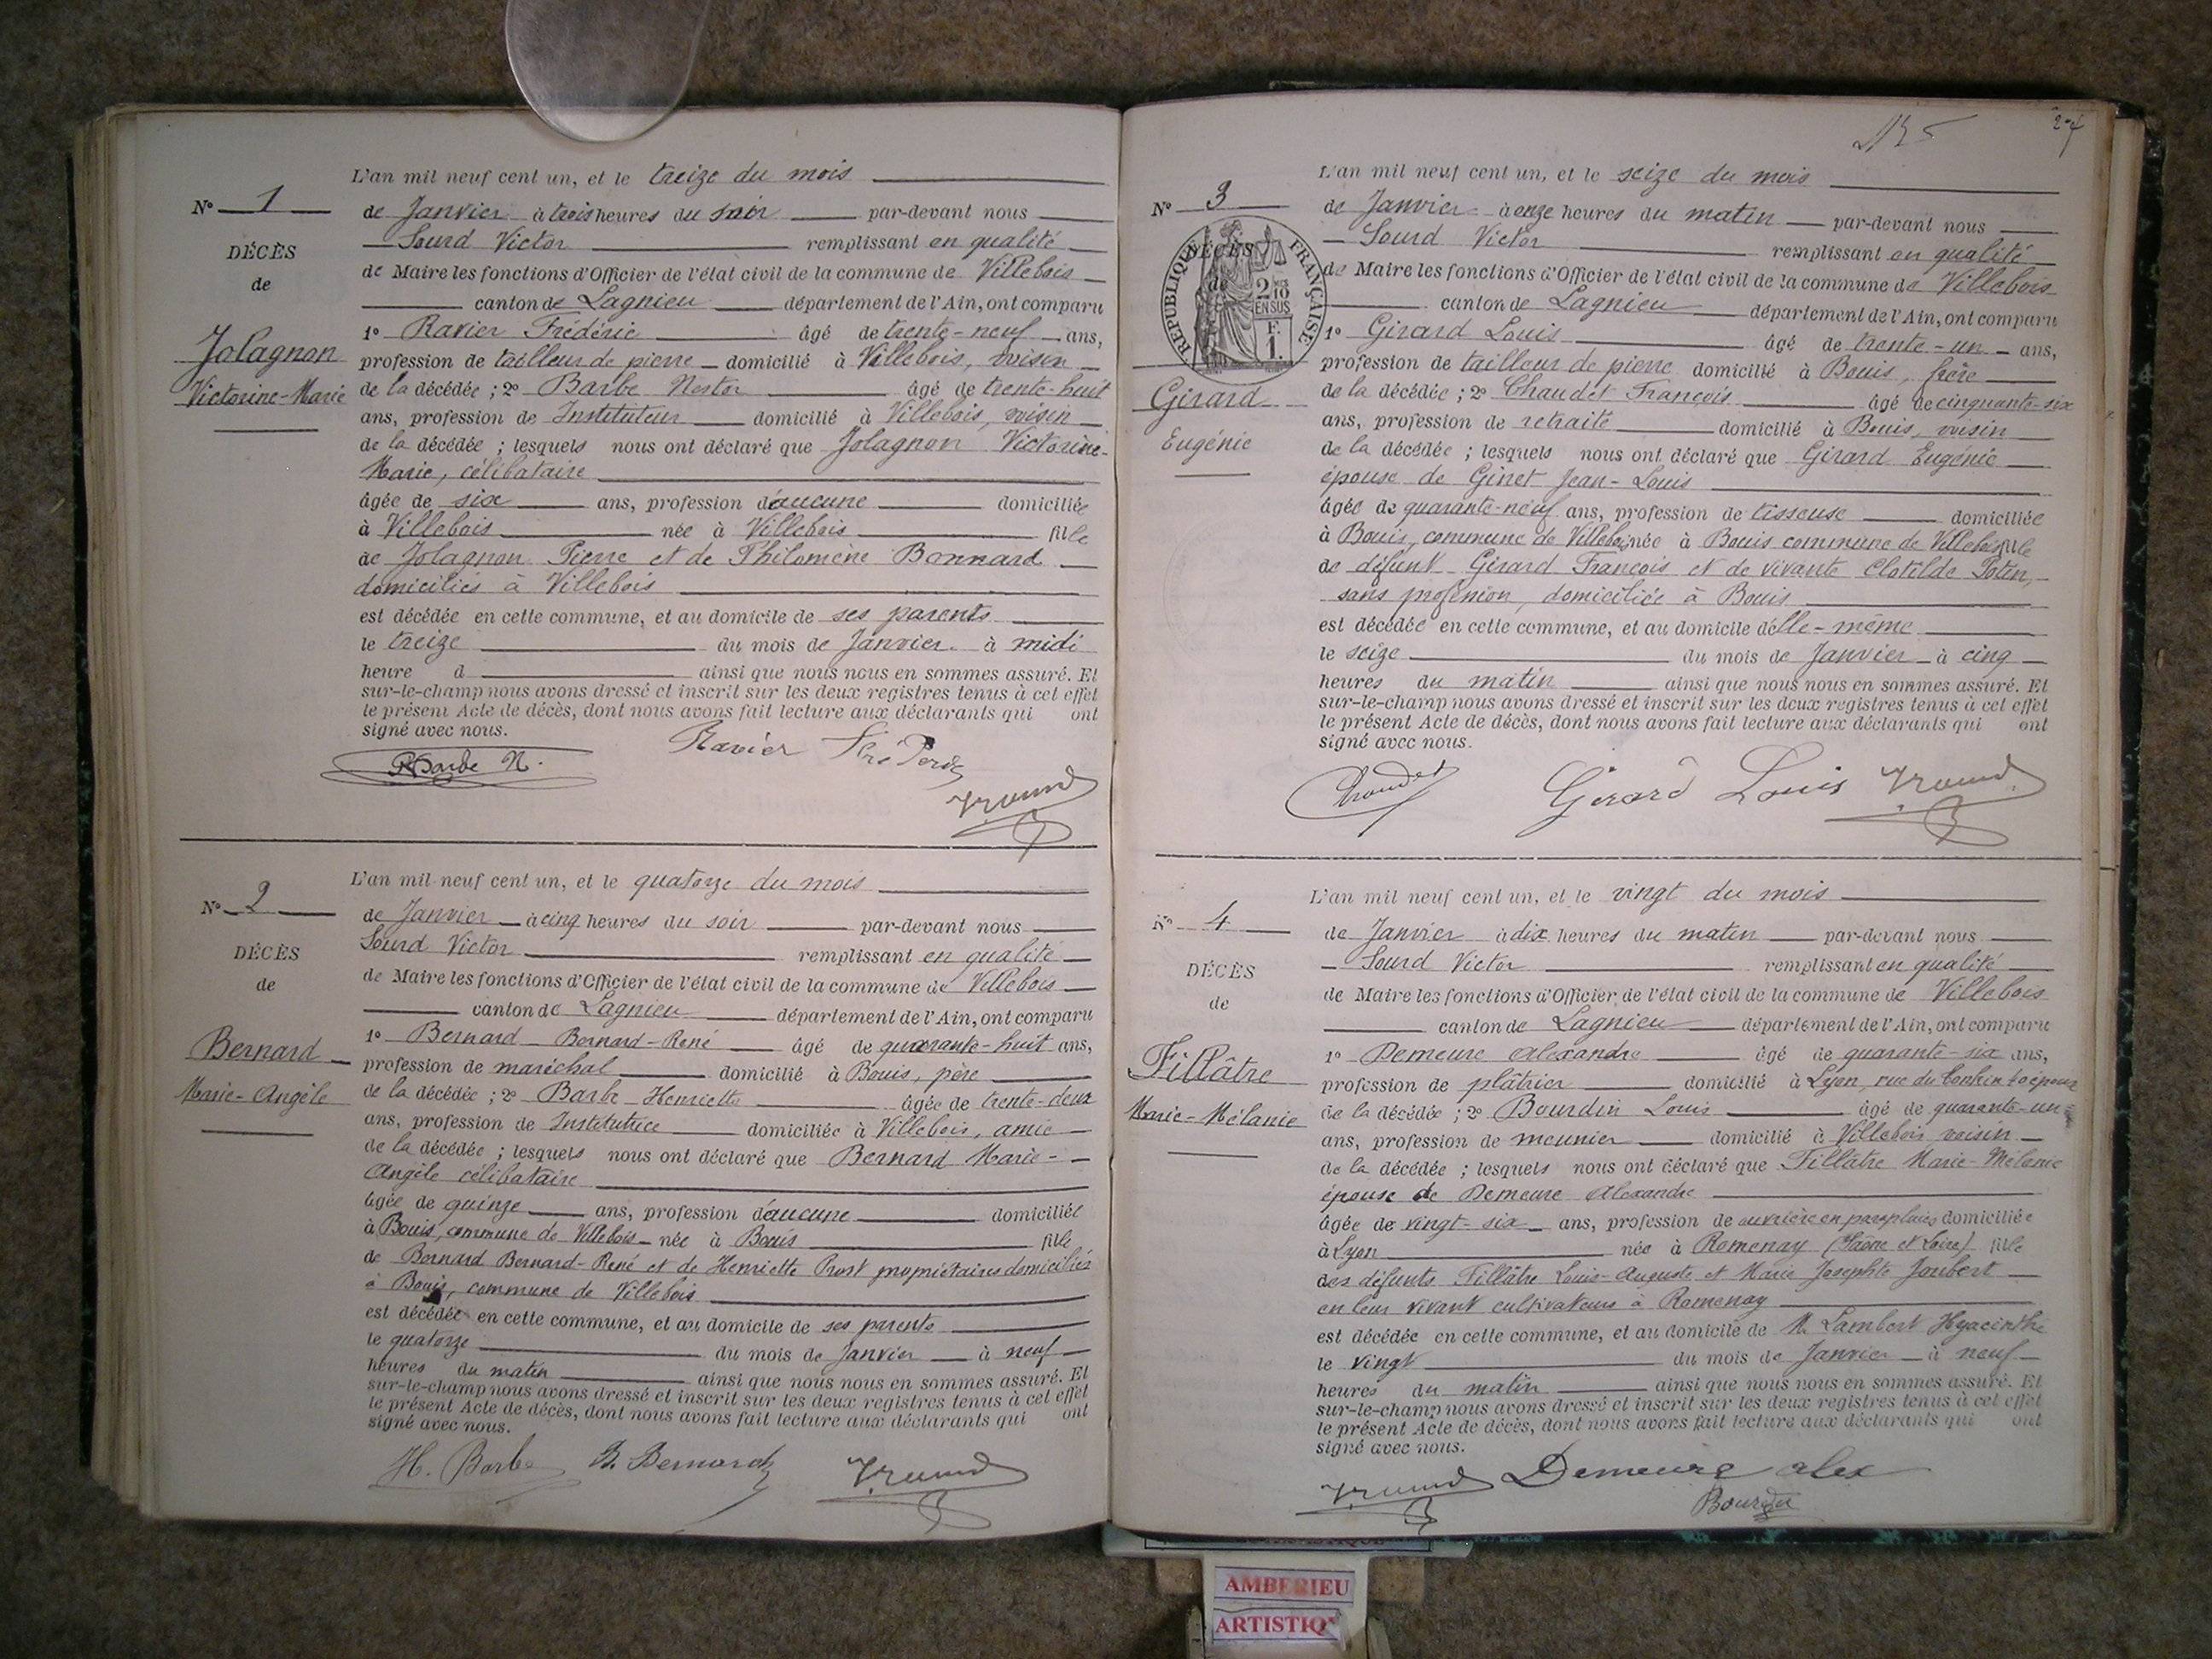 L'an mil neuf cent un, et le treize du mois
N° 1
de Janvier à trois heures du soir par-devant nous
Sourd Victor remplissant en qualité
DÉCÈS
de Maire les fonctions d'Officier de l'état civil de la commune de Villebois
de
canton de Lagnieu département de l'Ain, ont comparu
1° Ravier Frédéric âgé de trente-neuf ans,
Jolagnon
profession de tailleur de pierre domicilié à Villebois, voisin
Victorine-Marie
de la décédée ; 2° Barbe Nestor âgé de trente-huit
ans, profession de Instituteur domicilié à Villebois, voisin
de la décédée ; lesquels nous ont déclaré que Jolagnon Victorine-
Marie, célibataire
âgée de six ans, profession d'aucune domiciliée
à Villebois née à Villebois fille
de Jolagnon Pierre et de Philomène Bonnard
domiciliés à Villebois
est décédée en cette commune, et au domicile de ses parents
le treize du mois de Janvier à midi
heure d ainsi que nous nous en sommes assuré. Et
sur-le-champ nous avons dressé et inscrit sur les deux registres tenus à cet effet
le présent Acte de décès, dont nous avons fait lecture aux déclarants qui ont
signé avec nous.
Barbe N. Ravier
L'an mil neuf cent un, et le quatorze du mois
N° 2
de Janvier à cinq heures du soir par-devant nous
Sourd Victor remplissant en qualité
DÉCÈS
de Maire les fonctions d'Officier de l'état civil de la commune de Villebois
de
canton de Lagnieu département de l'Ain, ont comparu
1° Bernard Bernard-René âgé de quarante-huit ans,
Bernard
profession de maréchal domicilié à Bouis, père
Marie-Angèle
de la décédée ; 2° Barbe Henriette âgée de trente-deux
ans, profession de Institutrice domiciliée à Villebois, amie
de la décédée ; lesquels nous ont déclaré que Bernard Marie-
Angèle célibataire
âgée de quinze ans, profession d'aucune domiciliée
à Bouis, commune de Villebois née à Bouis fille
de Bernard Bernard-René et de Henriette Prost propriétaires domiciliés
à Bouis, commune de Villebois
est décédée en cette commune, et au domicile de ses parents
le quatorze du mois de Janvier à neuf
heures du matin ainsi que nous nous en sommes assuré. Et
sur-le-champ nous avons dressé et inscrit sur les deux registres tenus à cet effet
le présent Acte de décès, dont nous avons fait lecture aux déclarants qui ont
signé avec nous.
H. Barbe B. Bernard
L'an mil neuf cent un, et le seize du mois
N° 3
de Janvier à onze heures du matin par-devant nous
Sourd Victor remplissant en qualité
DÉCÈS
de
RÉPUBLIQUE FRANÇAISE
2/10 EN SUS
F. 1.
de Maire les fonctions d'Officier de l'état civil de la commune de Villebois
canton de Lagnieu département de l'Ain, ont comparu
1° Girard Louis âgé de trente-un ans,
profession de tailleur de pierre domicilié à Bouis, frère
Girard
de la décédée ; 2° Chaudet François âgé de cinquante-six
Eugénie
ans, profession de retraité domicilié à Bouis, voisin
de la décédée ; lesquels nous ont déclaré que Girard Eugénie
épouse de Ginet Jean-Louis
âgée de quarante-neuf ans, profession de tisseuse domiciliée
à Bouis, commune de Villebois née à Bouis commune de Villebois fille
de défunt Girard François et de vivante Clotilde Potin,
sans profession, domiciliée à Bouis
est décédée en cette commune, et au domicile d'elle-même
le seize du mois de Janvier à cinq
heures du matin ainsi que nous nous en sommes assuré. Et
sur-le-champ nous avons dressé et inscrit sur les deux registres tenus à cet effet
le présent Acte de décès, dont nous avons fait lecture aux déclarants qui ont
signé avec nous.
Chaudet Girard Louis
L'an mil neuf cent un, et le vingt du mois
N° 4
de Janvier à dix heures du matin par-devant nous
Sourd Victor remplissant en qualité
DÉCÈS
de Maire les fonctions d'Officier de l'état civil de la commune de Villebois
de
canton de Lagnieu département de l'Ain, ont comparu
1° Demeure Alexandre âgé de quarante-six ans,
Fillâtre
profession de plâtrier domicilié à Lyon, rue du époux
Marie-Mélanie
de la décédée ; 2° Bourdin Louis âgé de quarante-un
ans, profession de meunier domicilié à Villebois voisin
de la décédée ; lesquels nous ont déclaré que Fillâtre Marie-Mélanie
épouse de Demeure Alexandre
âgée de vingt-six ans, profession de ouvrière en parapluies domiciliée
à Lyon née à Romenay (Saône et Loire) fille
des défunts Fillâtre Louis-Auguste et Marie Josephte Joubert
en leur vivant cultivateurs à Romenay
est décédée en cette commune, et au domicile de M. Lambert Hyacinthe
le vingt du mois de Janvier à neuf
heures du matin ainsi que nous nous en sommes assuré. Et
sur-le-champ nous avons dressé et inscrit sur les deux registres tenus à cet effet
le présent Acte de décès, dont nous avons fait lecture aux déclarants qui ont
signé avec nous.
Demeure alex
Bourdin
AMBERIEU
ARTISTIQ